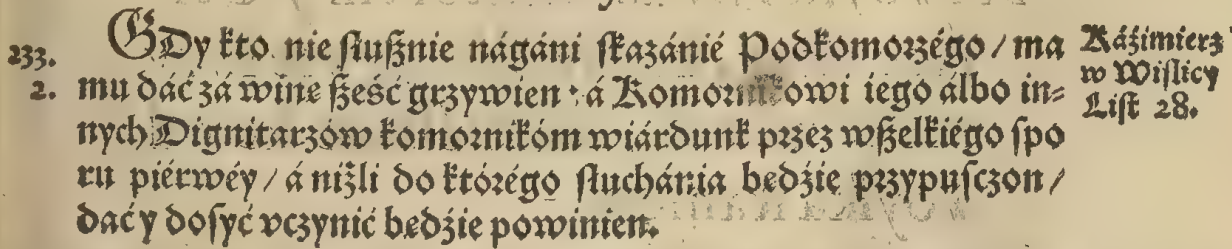 233. GDy kto nie ſłuſznie nágáni ſkazánié Podkomorzégo / ma
2. mu dáć zá winę ſześć grzywien : á Komornikowi iego álbo in⸗
nych Dignitarzów komornikóm wiárdunk przez wſzelkiégo ſpo
ru piérwéy / á niżli do którégo ſłuchánia będzie przypuſczon /
dáć y doſyć vczynić będzie powinien.
Káźimierz
w Wiſlicy
Liſt 28.